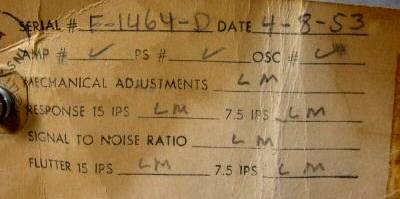 SERIAL # F-1464-D DATE 4-8-53
AMP # ✓ PS # ✓ OSC # ✓
MECHANICAL ADJUSTMENTS LM
RESPONSE 15 IPS LM 7.5 IPS LM
SIGNAL TO NOISE RATIO LM
FLUTTER 15 IPS LM 7.5 IPS LM